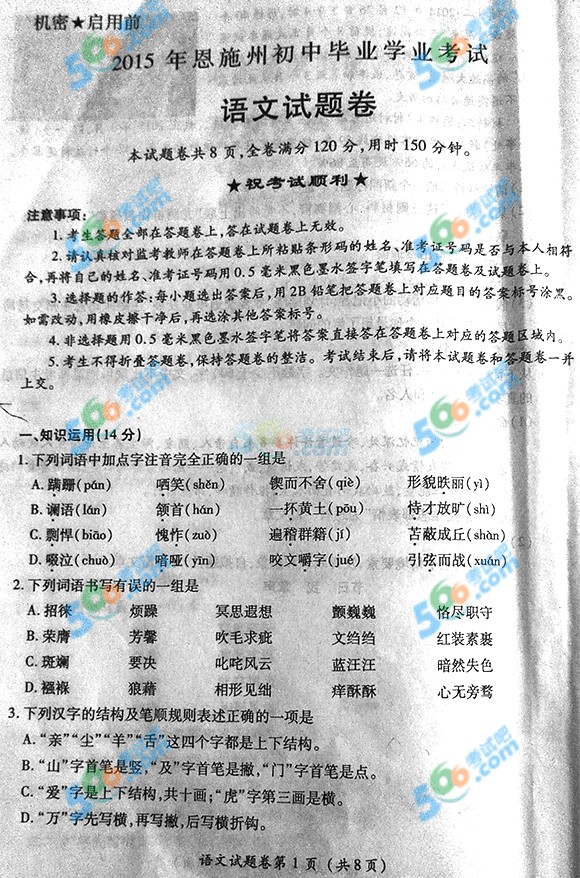 机密★启用前
2015年恩施州初中毕业学业考试
语文试题卷
本试题卷共8页,全卷满分120分,用时150分钟。
★祝考试顺利★
注意事项:
1.考生答题全部在答题卷上,答在试题卷上无效。
2.请认真核对监考教师在答题卷上所粘贴条形码的姓名、准考证号码是否与本人相符
合,再将自己的姓名、准考证号码用0.5毫米黑色墨水签字笔填写在答题卷及试题卷上。
3.选择题的作答:每小题选出答案后,用2B铅笔把答题卷上对应题目的答案标号涂黑。
如需改动,用橡皮擦干净后,再选涂其他答案标号。
4.非选择题用0.5毫米黑色墨水签字笔将答案直接答在答题卷上对应的答题区域内。
5.考生不得折叠答题卷,保持答题卷的整洁。考试结束后,请将本试题卷和答题卷一并
上交。
一、知识运用(14分)
1.下列词语中加点字注音完全正确的一组是
A.蹒跚(pán) 哂笑(shěn) 锲而不舍(qiè) 形貌昳丽(yì)
B.谰语(lán) 颔首(hán) 一抔黄土(póu) 恃才放旷(shì)
C.剽悍(biāo) 愧怍(zuò) 遍稽群籍(jī) 苫蔽成丘(shàn)
D.啜泣(chuò) 喑哑(yīn) 咬文嚼字(jué) 引弦而战(xuán)
2.下列词语书写有误的一组是
A.招徕 烦躁 冥思遐想 颤巍巍 恪尽职守
B.荣膺 芳馨 吹毛求疵 文绉绉 红装素裹
C.斑斓 要决 叱咤风云 蓝汪汪 暗然失色
D.襁褓 狼藉 相形见绌 痒酥酥 心无旁骛
3.下列汉字的结构及笔顺规则表述正确的一项是
A.“亲”“尘”“羊”“舌”这四个字都是上下结构。
B.“山”字首笔是竖,“及”字首笔是撇,“门”字首笔是点。
C.“爱”字是上下结构,共十画;“虎”字第三画是横。
D.“万”字先写横,再写撇,后写横折钩。
语文试题卷第1页(共8页)
566考试吧